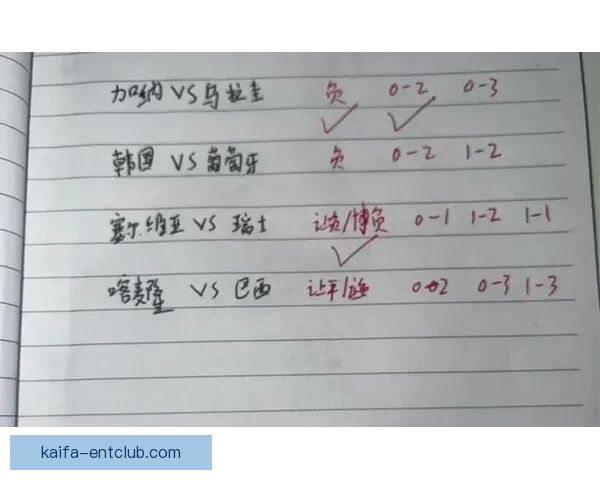 加纳 VS 乌拉圭 负 0-2 0-3
韩国 VS 葡萄牙 负 0-2 1-2
塞尔维亚 VS 瑞士 让负/博负 0-1 1-2 1-1
喀麦隆 VS 巴西 让平/ 0-2 0-3 1-3
kaifa-entclub.com